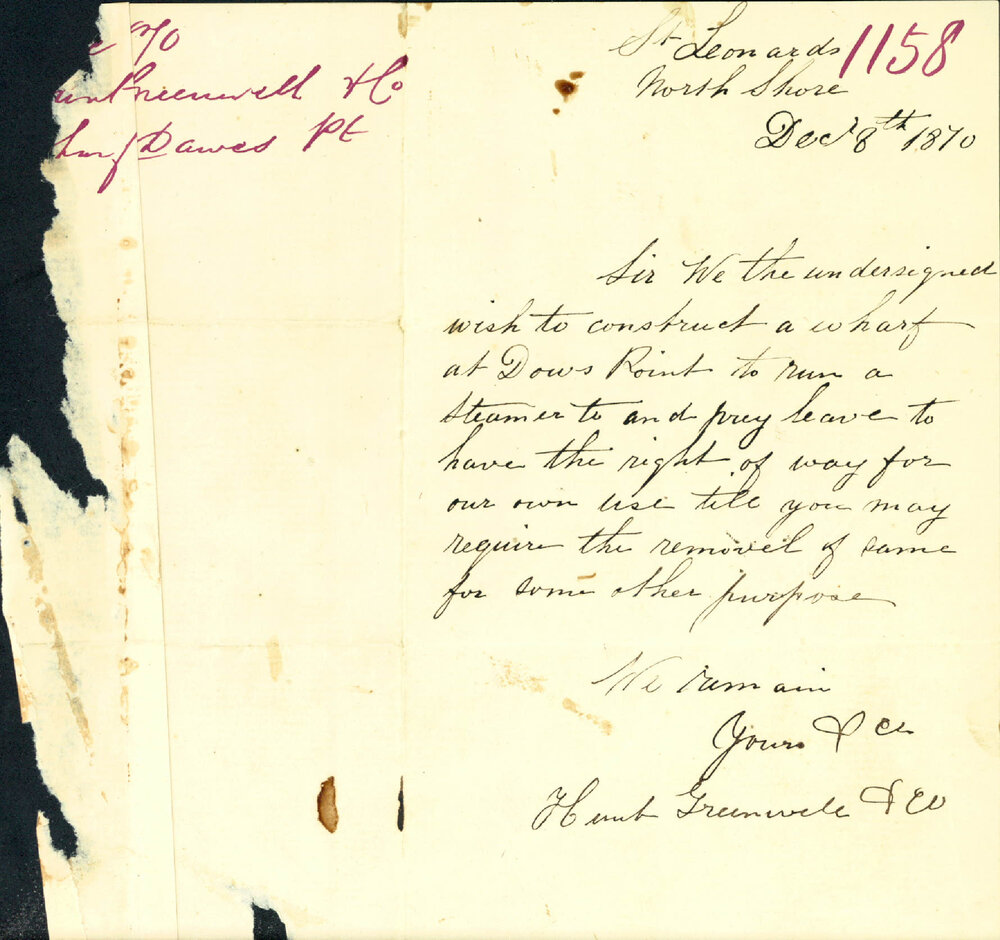 70
Greenwell & Co
Dawes Pt
1158
St Leonards
North Shore
Decr 8th 1870
Sir We the undersigned
wish to construct a wharf
at Dows Point to run a
steamer to and pray leave to
have the right of way for
our own use till you may
require the removel of same
for some other purpose
We remain
Yours &ce
Hunt Greenwele & Co